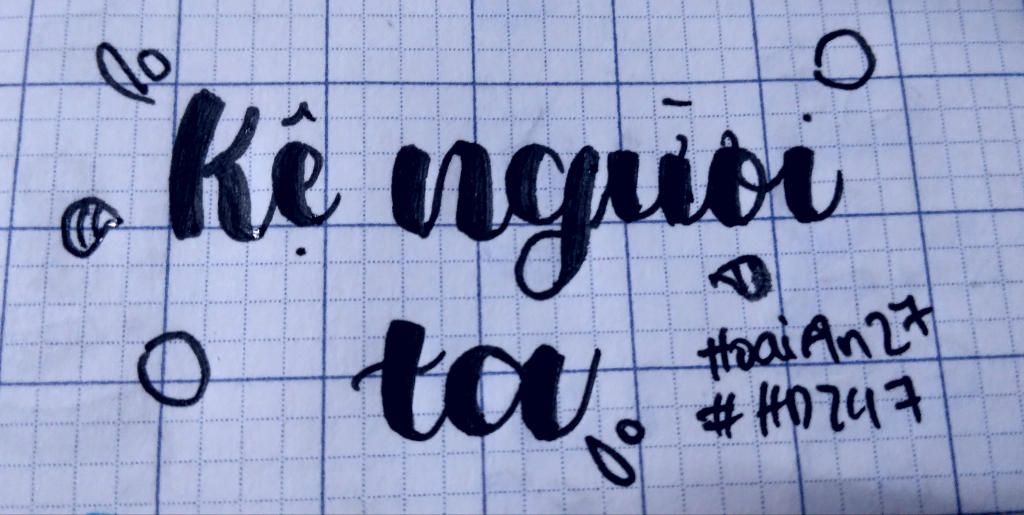 Kệ người
ta
HoàiAn27
#HD247